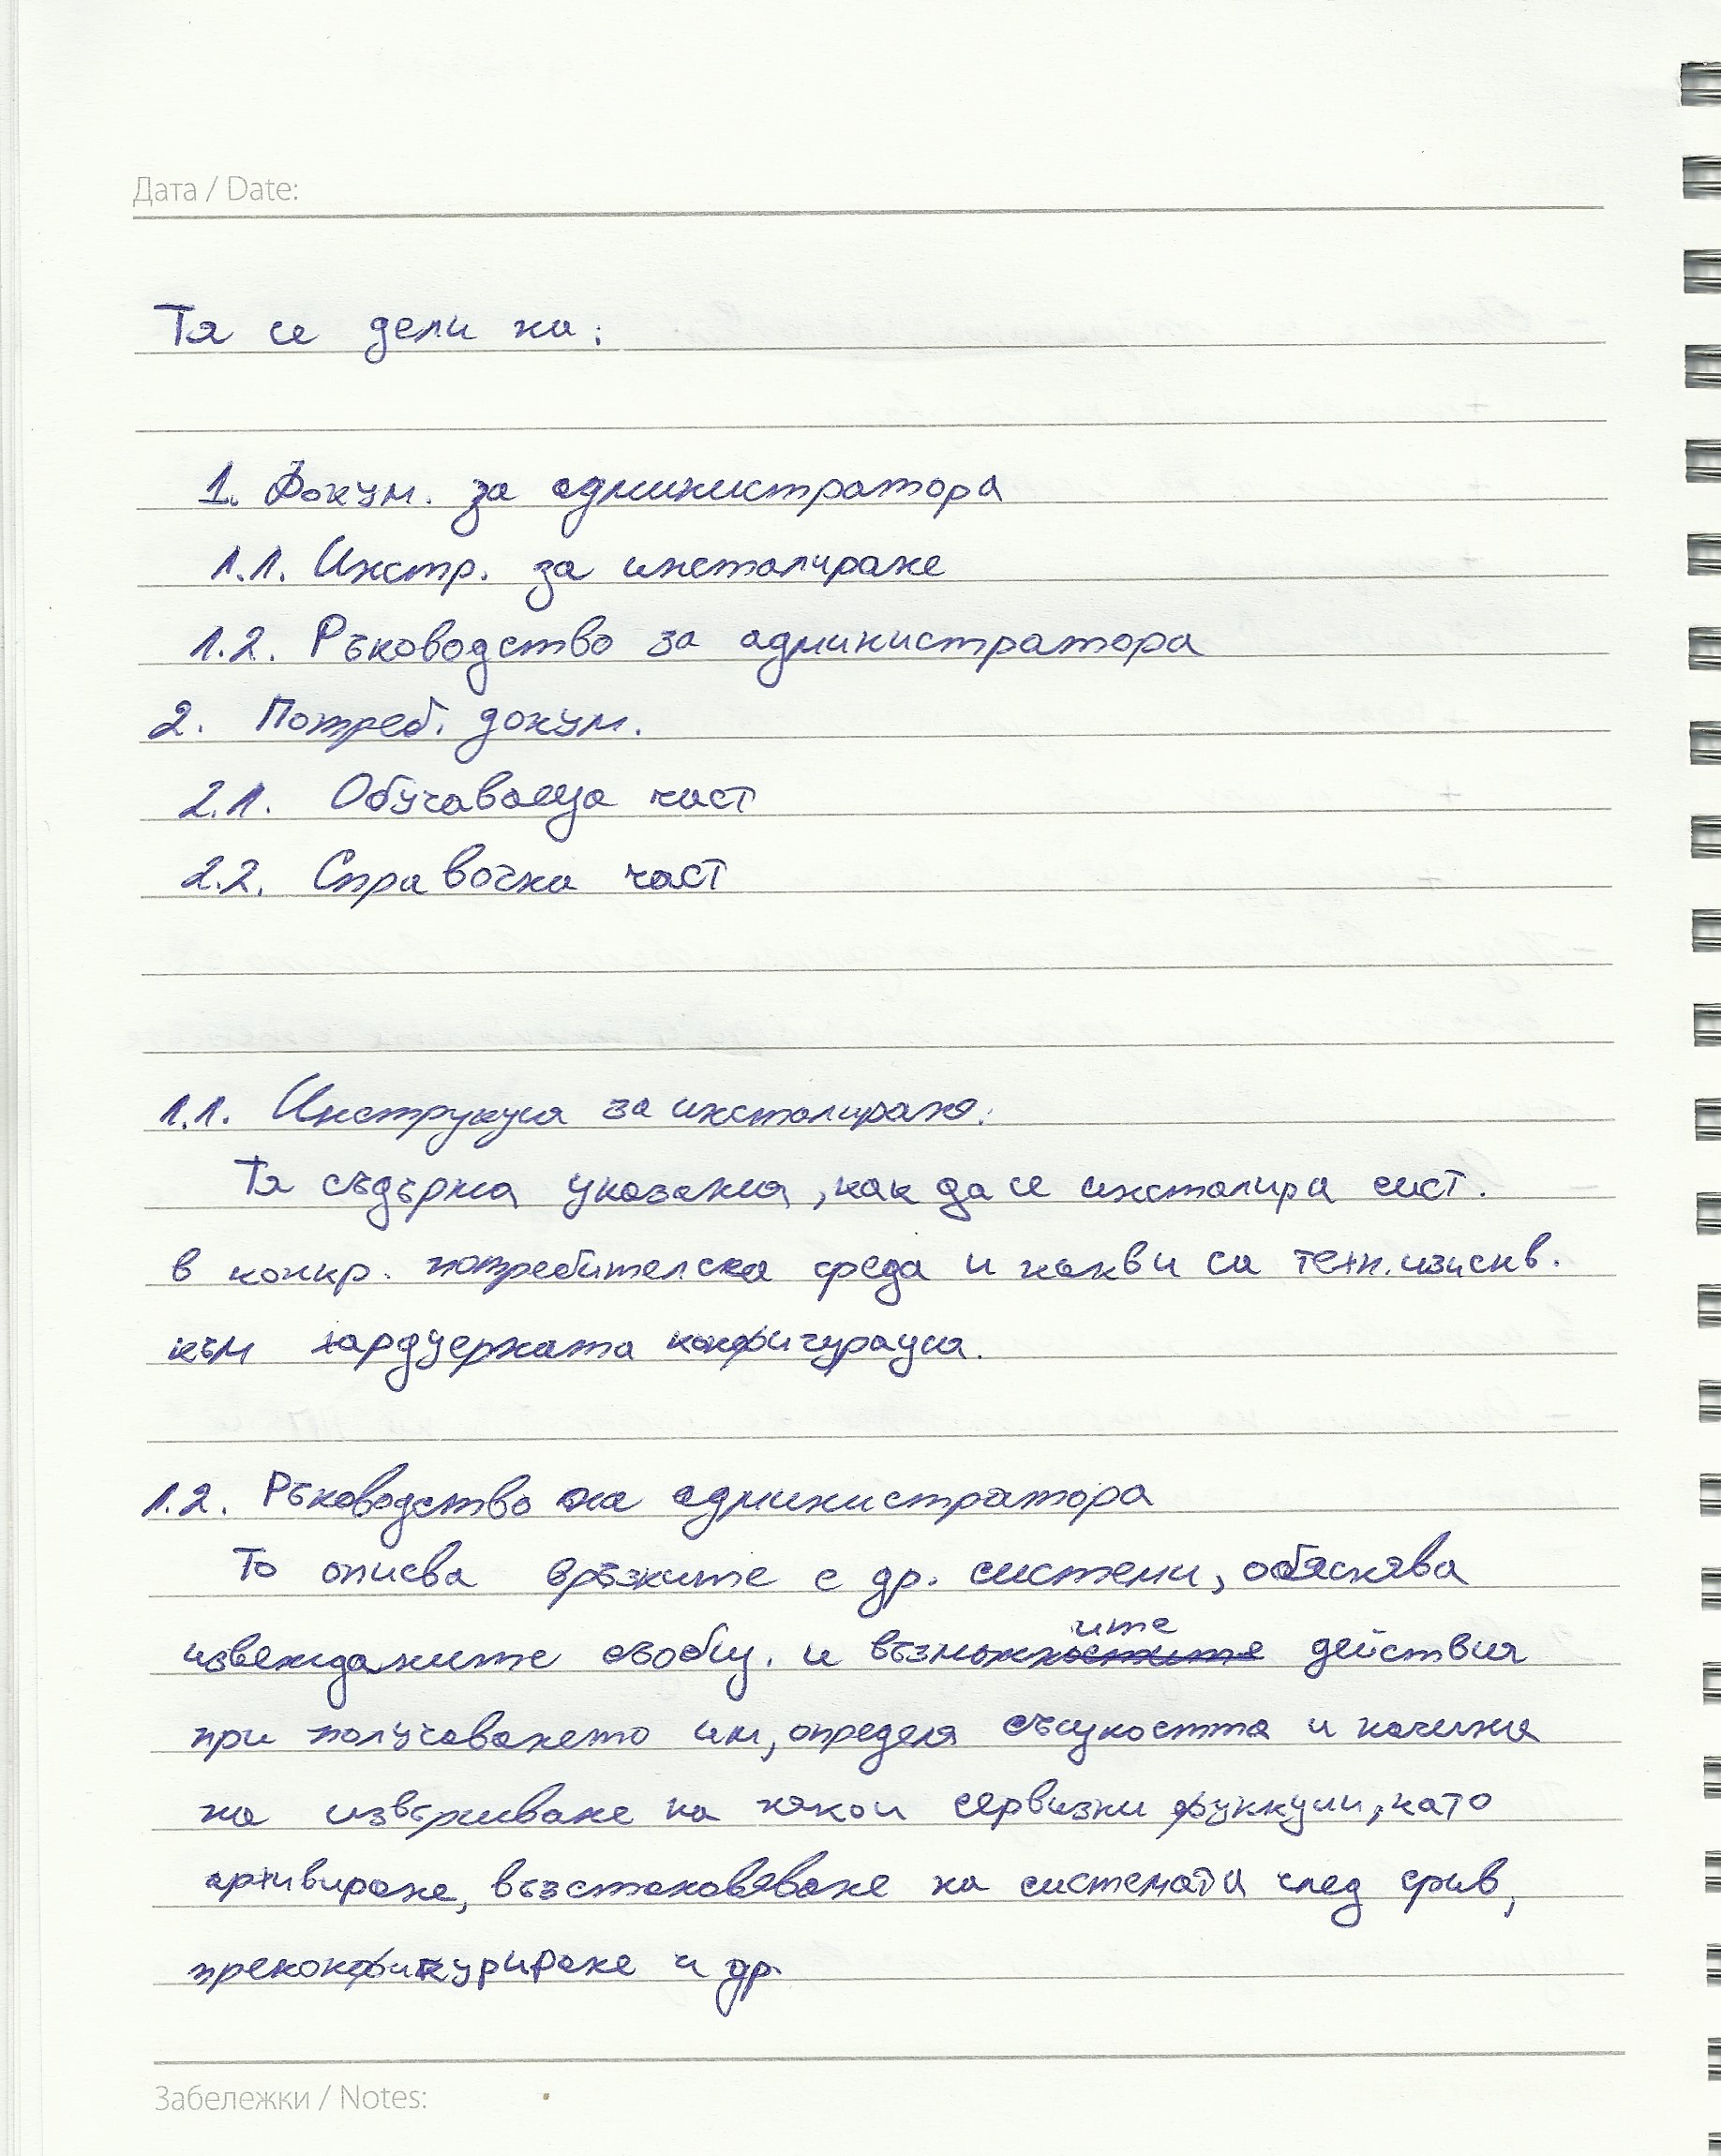 Дата / Date:
Тя се дели на:
1. Докум. за администратора
1.1. Инстр. за инсталиране
1.2. Ръководство за администратора
2. Потреб. докум.
2.1. Обучаваща част
2.2. Справочна част
1.1. Инструкция за инсталиране:
Тя съдържа указания, как да се инсталира сист.
в конкр. потребителска среда и какви са техн. изискв.
към хардуерната конфигурация.
1.2. Ръководство на администратора
То описва връзките с др. системи, обяснява
извежданите съобщ. и възможните действия
при получаването им, определя същността и начина
на извършване на някои сервизни функции, като
архивиране, възстановяване на системата след срив,
преконфигуриране и др.
Забележки / Notes: